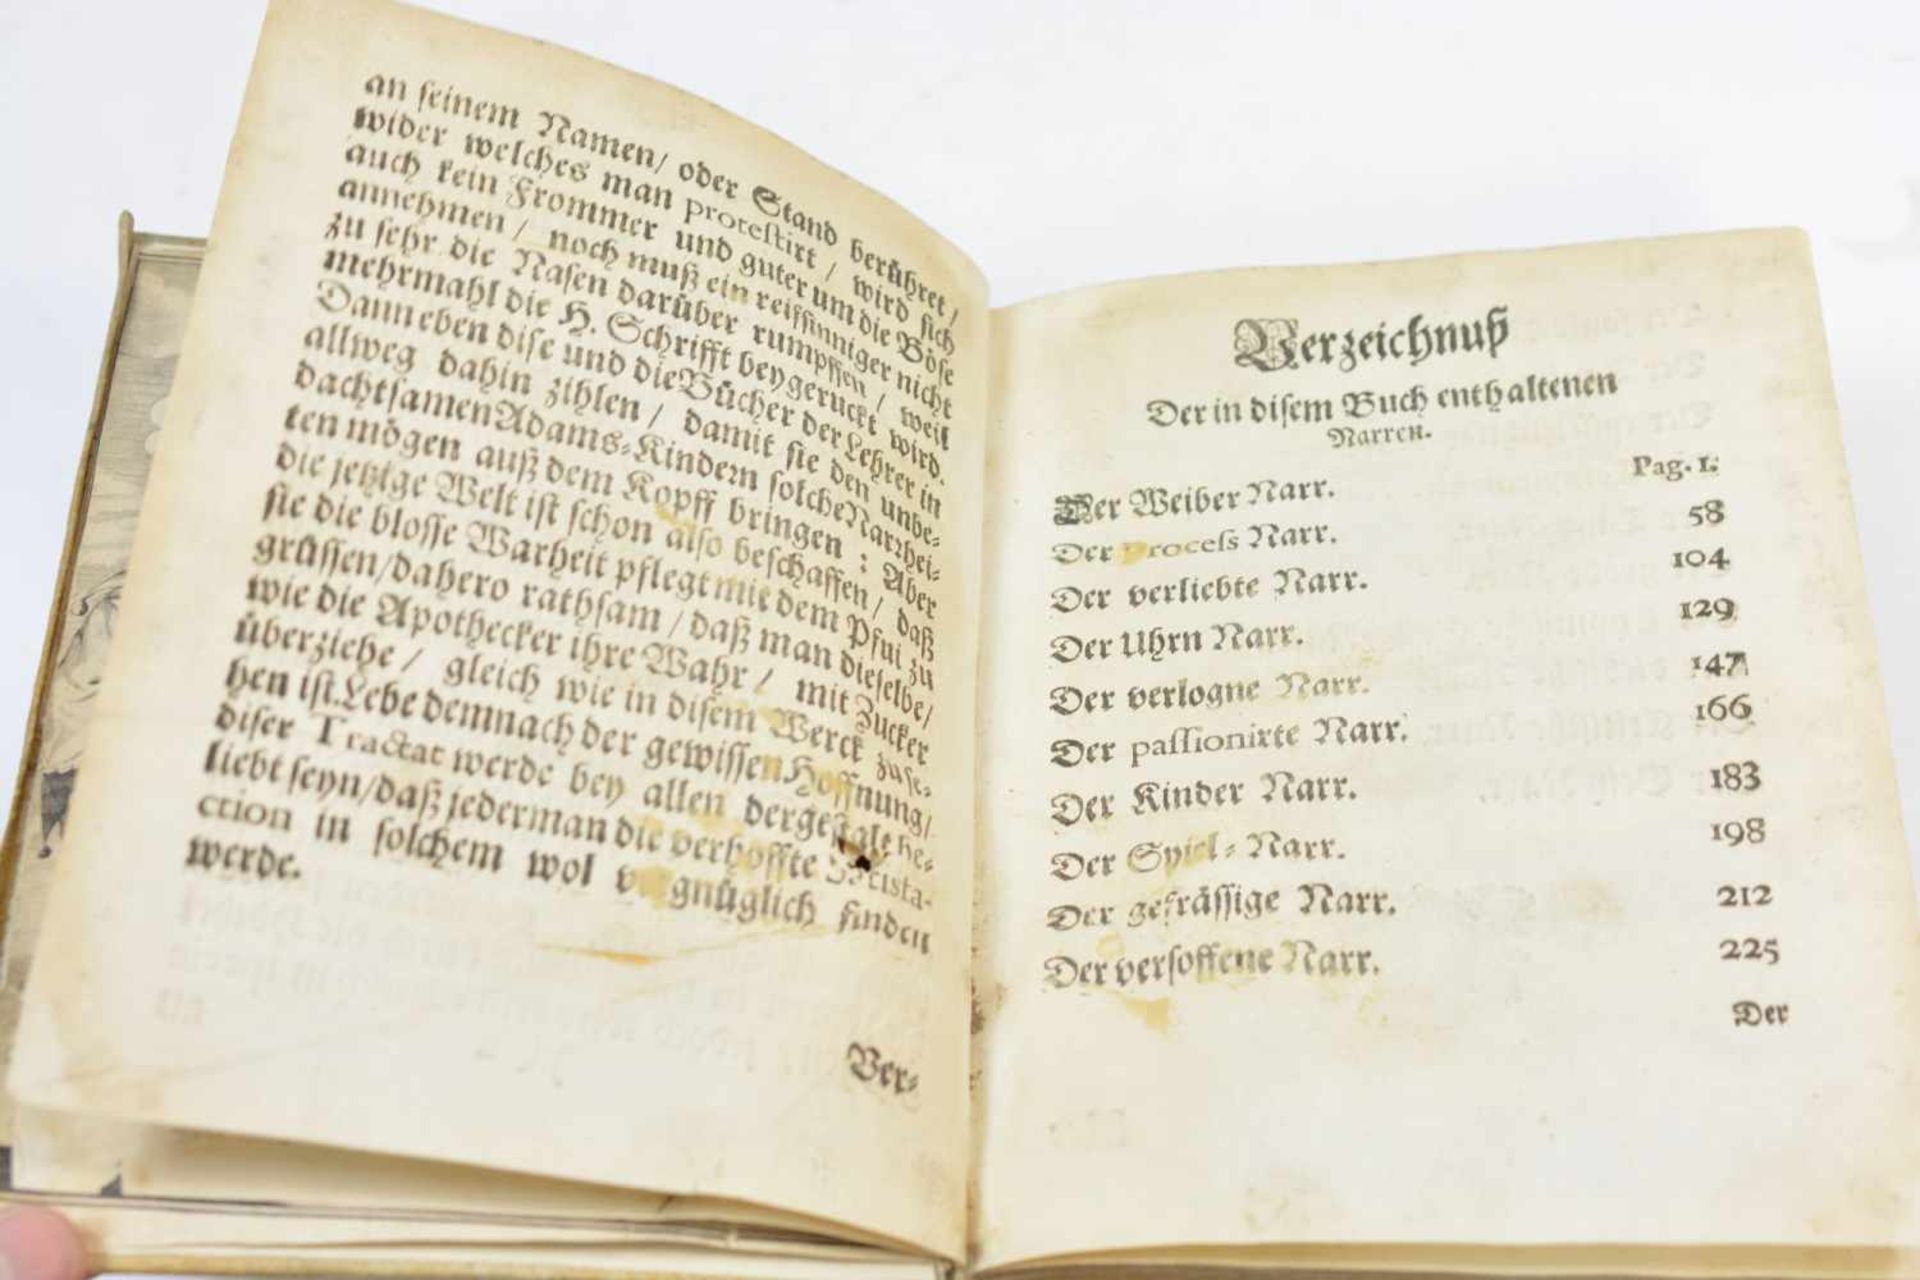 an seinem Namen/ oder Stand berühret/
wider welches man protestirt / wird sich
auch kein Frommer und guter um die Böse
annehmen / noch muß ein reiffsinniger nicht
zu sehr die Nasen darüber rumpffen / weil
mehrmahl die H. Schrifft beygeruckt wird.
Dann eben dise und die Bücher der Lehrer in
allweg dahin zihlen / damit sie den unbe-
dachtsamen Adams-Kindern solche Narrhei-
ten mögen auß dem Kopff bringen : Aber
die jetzige Welt ist schon also beschaffen / daß
sie die blosse Warheit pflegt mit dem Pfui zu
grüssen/dahero rathsam / daß man dieselbe/
wie die Apothecker ihre Wahr / mit Zucker
überziehe / gleich wie in disem Werck zuse-
hen ist. Lebe demnach der gewissen Hoffnung/
diser Tractat werde bey allen dergestalt be-
liebt seyn/daß jederman die verhoffte Satisfa-
ction in solchem wol vergnüglich finden
werde.
Ver-
Verzeichnuß
Der in disem Buch enthaltenen
Narren.
Pag. 1.
Der Weiber Narr.
Der Process Narr. 58
Der verliebte Narr. 104
Der Uhrn Narr. 129
Der verlogne Narr. 147
Der passionirte Narr. 166
Der Kinder Narr. 183
Der Spiel-Narr. 198
Der gefrässige Narr. 212
Der versoffene Narr. 225
Der